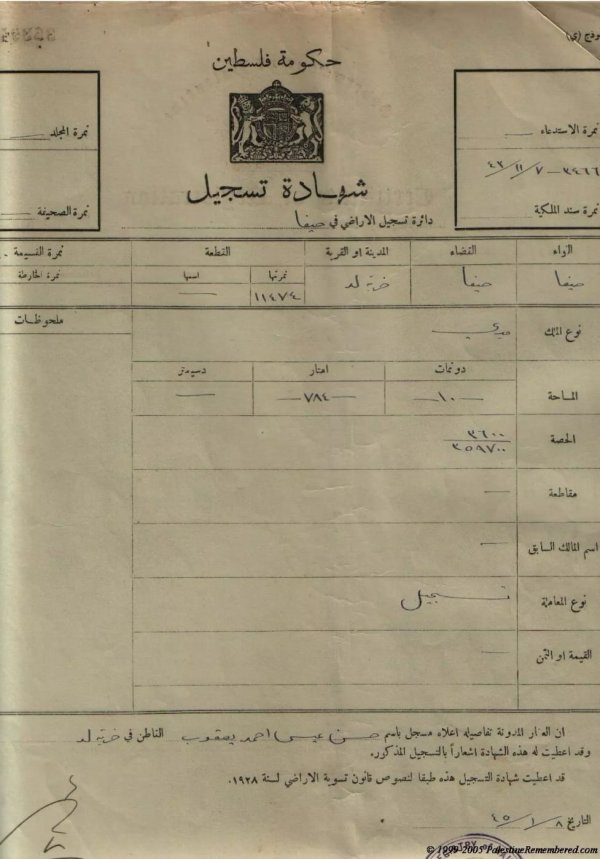 حكومة فلسطين
نمرة الاستدعاء
نمرة المجلد
٣٤٦٦-٧/١١/٤٣
شهادة تسجيل
نمرة سند الملكية
دائرة تسجيل الاراضي في حيفا
نمرة الصحيفة
اللواء القضاء المدينة او القرية القطعة نمرة القسيمة
حيفا حيفا خربة لد نمرتها اسمها نمرة الخارطة
١١٤٧٤
ملحوظات
نوع الملك ميري
دونمات امتار دسيمتر
المساحة ١٠ ٧٨٤
الحصة ٣٦٠٠
٣٥٩٧٠٠
مقاطعة
اسم المالك السابق
نوع المعاملة تسجيل
القيمة او الثمن
ان العقار المدونة تفاصيله اعلاه مسجل باسم حسن عيسى احمد يعقوب القاطن في خربة لد
وقد اعطيت له هذه الشهادة اشعاراً بالتسجيل المذكور.
قد اعطيت شهادة التسجيل هذه طبقا لنصوص قانون تسوية الاراضي لسنة ١٩٢٨.
التاريخ ٨/١/٤٥
© 1999-2005 PalestineRemembered.com